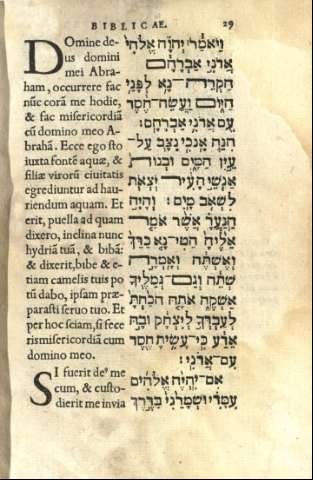 BIBLICAE. 29
Domine de-
us domini
mei Abra-
ham, occurrere fac
nūc corā me hodie,
& fac misericordiā
cū domino meo A-
brahā. Ecce ego sto
iuxta fontē aquæ, &
filiæ virorū ciuitatis
egrediuntur ad hau-
riendum aquam. Et
erit, puella ad quam
dixero, inclina nunc
hydriā tuā, & bibā:
& dixerit, bibe & e-
tiam camelis tuis po
tū dabo, ipsam præ-
parasti seruo tuo. Et
per hoc sciam, si fece
ris misericordiā cum
domino meo.
Si fuerit deꝰ me
cum, & custo-
dierit me in via
וַיֹּאמַר יְהוָֹה אֱלֹהֵי
אֲדֹנִי אַבְרָהָם
הַקְרֵה נָא לְפָנַי
הַיּוֹם וַעֲשֵׂה חֶסֶד
עִם אֲדֹנִי אַבְרָהָם׃
הִנֵּה אָנֹכִי נִצָּב עַל־
עֵין הַמָּיִם וּבְנוֹת
אַנְשֵׁי הָעִיר יֹצְאֹת
לִשְׁאֹב מָיִם׃ וְהָיָה
הַנַּעֲרָ אֲשֶׁר אֹמַר
אֵלֶיהָ הַטִּי־נָא כַדֵּךְ
וְאֶשְׁתֶּה וְאָמְרָה
שְׁתֵה וְגַם גְּמַלֶּיךָ
אַשְׁקֶה אֹתָהּ הֹכַחְתָּ
לְעַבְדְּךָ לְיִצְחָק וּבָהּ
אֵדַע כִּי־עָשִׂיתָ חֶסֶד
עִם־אֲדֹנִי׃
אִם־יִהְיֶה אֱלֹהִים
עִמָּדִי וּשְׁמָרַנִי בַּדֶּרֶךְ